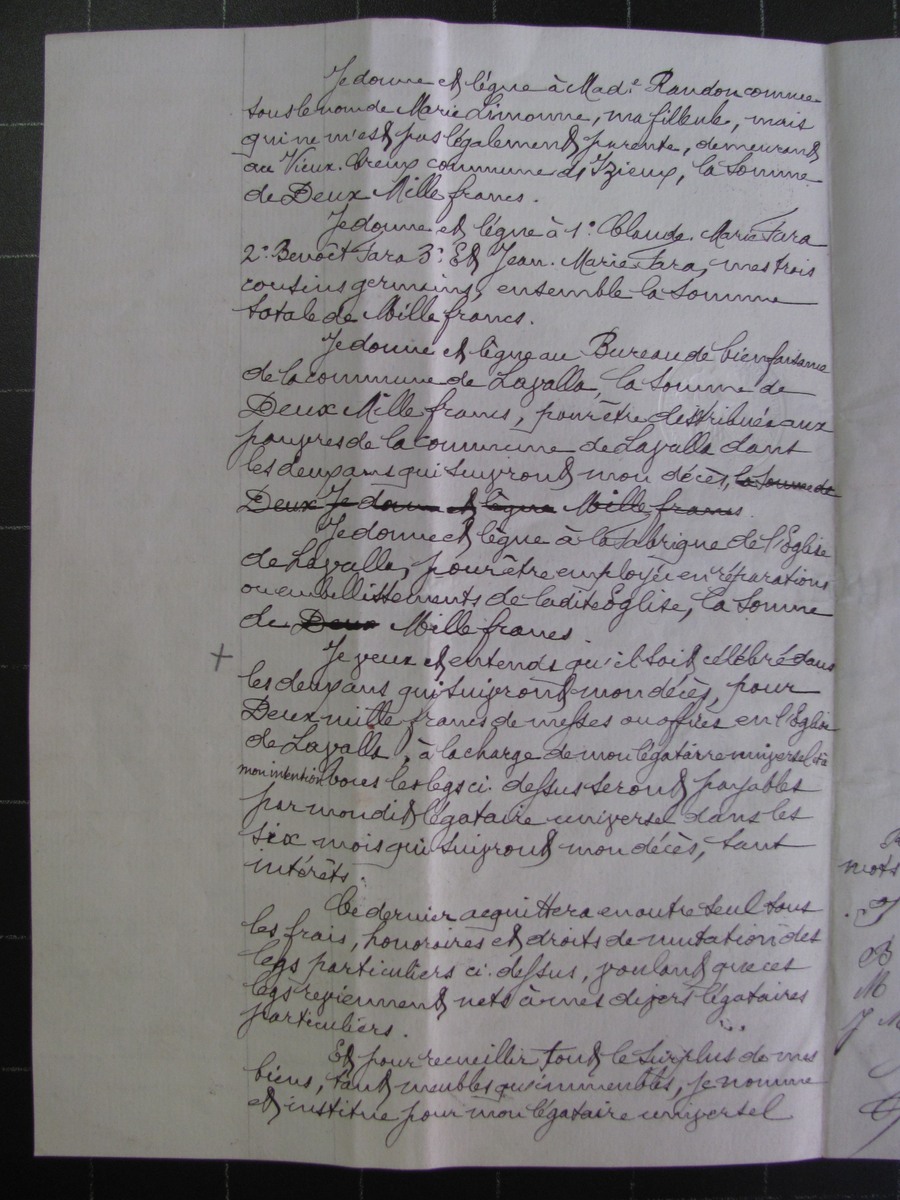 Je donne et lègue à Mad.e Randon connue
sous le nom de Marie Limonne, ma filleule, mais
qui ne m'est pas légalement parente, demeurant
au Vieux-Creux commune d'Izieux, la somme
de Deux Mille francs.
Je donne et lègue à 1° Claude-Marie Fara
2° Benoît Fara 3° Et Jean-Marie Fara, mes trois
cousins germains, ensemble la somme
totale de Mille francs.
Je donne et lègue au Bureau de bienfaisance
de la commune de Lavalla, la somme de
Deux Mille francs, pour être distribuée aux
pauvres de la commune de Lavalla dans
les deux ans qui suivront mon décès, la somme de
Deux Je donne et lègue Mille francs.
Je donne et lègue à la fabrique de l'Eglise
de Lavalla, pour être employée en réparations
ou embellissements de ladite Eglise, la somme
de Deux Mille francs.
+ Je veux et entends qu'il soit célébré dans
les deux ans qui suivront mon décès, pour
Deux mille francs de messes ou offices en l'Eglise
de Lavalla, à la charge de mon légataire universel et à
mon intention tous les legs ci-dessus seront payables
par mondit légataire universel dans les
six mois qui suivront mon décès, sans
intérêts.
Ce dernier acquittera en outre seul tous
les frais, honoraires et droits de mutation des
legs particuliers ci-dessus, voulant que ces
legs reviennent nets à mes divers légataires
particuliers.
Et pour recueillir tout le surplus de mes
biens, tant meubles qu'immeubles, je nomme
et institue pour mon légataire universel
mots
B
M
J M